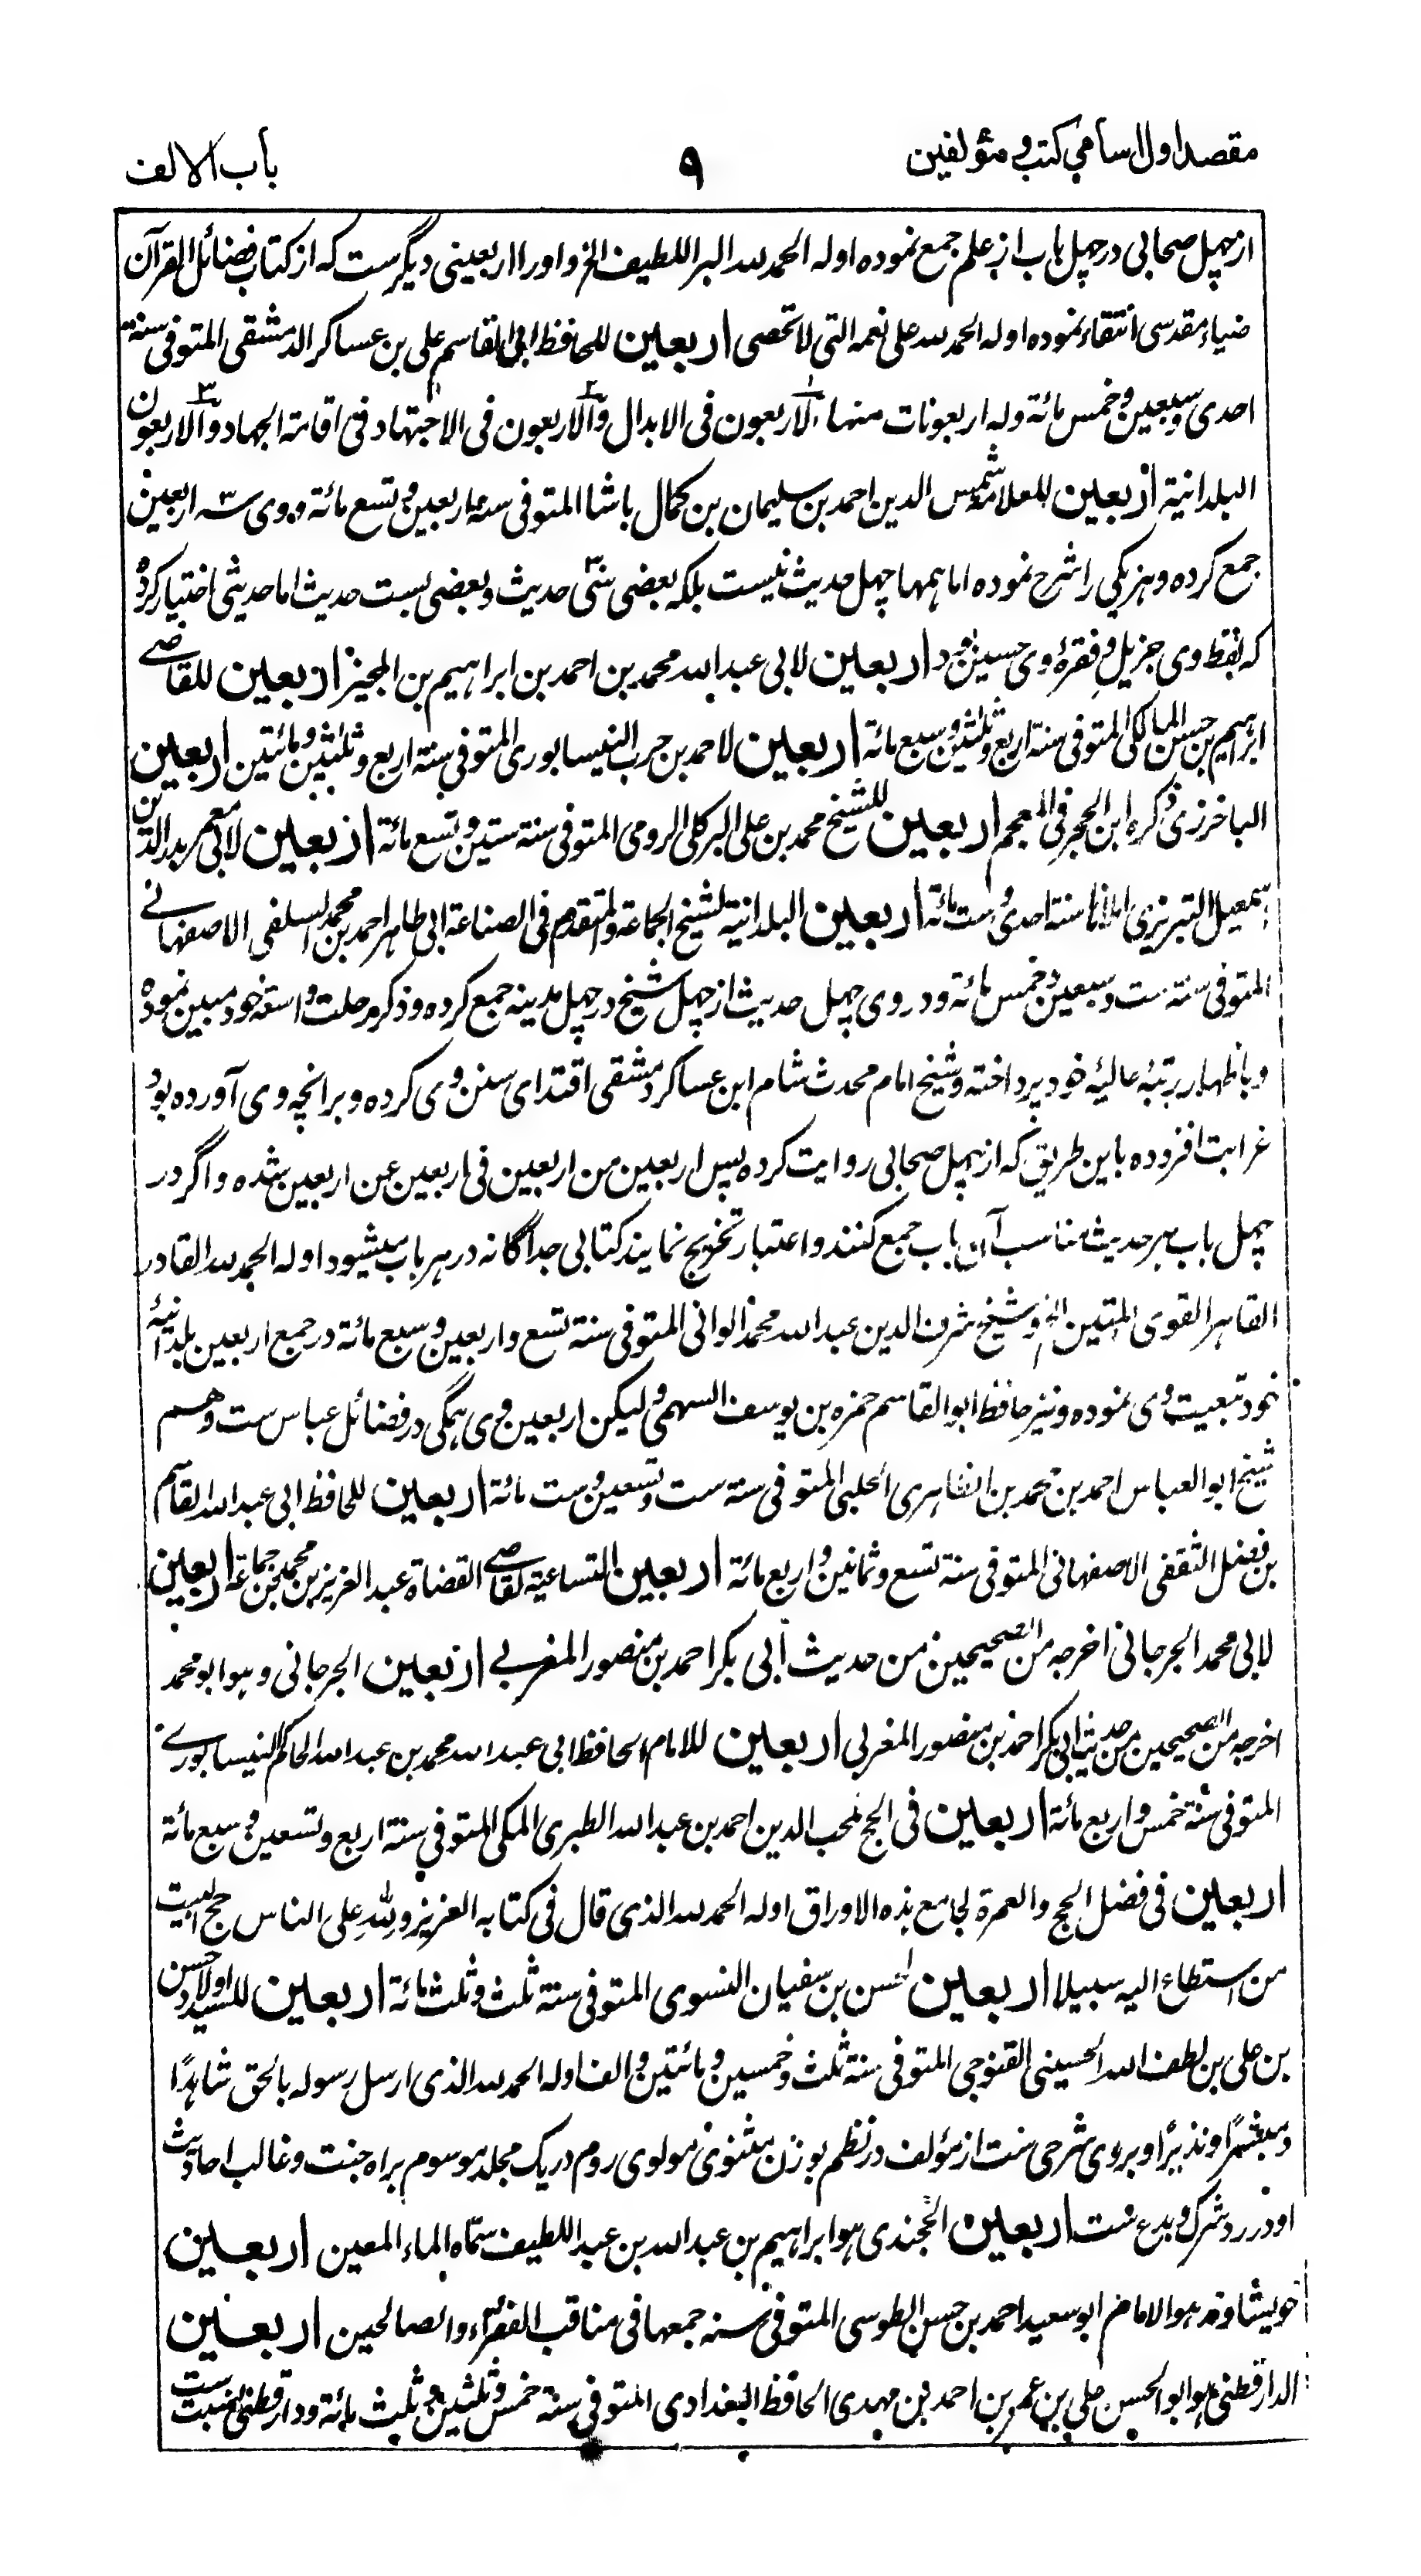 مقصد اول اسامی کتب و مؤلفین
۹
باب الالف
از چهل صحابی در چهل باب از علم جمع نموده اوله الحمد لله البر اللطیف الخ و او را اربعینی دیگرست که از کتاب فضائل القرآن
ضیاء مقدسی انتقاء نموده اوله الحمد لله علی نعمه التی لا تحصی اربعین للحافظ ابی القاسم علی بن عساکر الدمشقی المتوفی سنة
احدی وسبعین وخمس مائة وله اربعونات منها الاربعون فی الابدال والاربعون فی الاجتهاد فی اقامة الجهاد والاربعون
البلدانیة اربعین للعلامة شمس الدین احمد بن سلیمان بن کمال باشا المتوفی سنة اربعین وتسع مائة و وی سه اربعین
جمع کرده و هر یکی را شرح نموده اما همها چهل حدیث نیست بلکه بعضی سی حدیث و بعضی بست حدیث اما حدیثی اختیار کرده
که لفظ وی جزیل و فقرهٔ وی حسین بود اربعین لابی عبد الله محمد بن احمد بن ابراهیم بن المجیز اربعین للقاضی
ابراهیم بن حسن المالکی المتوفی سنة اربع وثلثین وسبع مائة اربعین لاحمد بن حرب النیسابوری المتوفی سنة اربع وثلثین ومائتین اربعین
الباخرزی ذکره ابن الحجر فی المعجم اربعین للشیخ محمد بن علی البرکلی الرومی المتوفی سنة ستین وتسع مائة اربعین لابی معمر بدر الدین
اسمعیل التبریزی املاها سنة احدی وست مائة اربعین البلدانیة لشیخ الجماعة والمتقدم فی الصناعة ابی طاهر احمد بن محمد السلفی الاصفهانی
المتوفی سنة ست وسبعین وخمس مائة و در وی چهل حدیث از چهل شیخ در چهل مدینه جمع کرده و ذکر رحلت واسعهٔ خود مبین نموده
و باظهار رتبهٔ عالیهٔ خود پرداخته و شیخ امام محدث شام ابن عساکر دمشقی اقتدای سنن وی کرده و بر انچه وی آورده بود
غرابت افزوده باین طریق که از چهل صحابی روایت کرده پس اربعین من اربعین فی اربعین عن اربعین شده و اگر در
چهل باب هر حدیث مناسب آن باب جمع کنند و اعتبار تخریج نمایند کتابی جداگانه در هر باب میشود اوله الحمد لله القادر
القاهر القوی المتین الخ و شیخ شرف الدین عبد الله محمد الوانی المتوفی سنة تسع واربعین وسبع مائة در جمع اربعین بلدانیهٔ
خود تبعیت وی نموده و نیز حافظ ابو القاسم حمزه بن یوسف السهمی ولیکن اربعین وی همگی در فضائل عباس ست وهم
شیخ ابو العباس احمد بن محمد بن الظاهری الحلبی المتوفی سنة ست وتسعین وست مائة اربعین للحافظ ابی عبد الله القاسم
بن فضل الثقفی الاصفهانی المتوفی سنة تسع وثمانین واربع مائة اربعین التساعیة لقاضی القضاة عبد العزیز بن محمد بن جماعة اربعین
لابی محمد الجرجانی اخرجه من الصحیحین من حدیث ابی بکر احمد بن منصور المغربی اربعین الجرجانی وهو ابو محمد
اخرجه من الصحیحین من حدیث ابی بکر احمد بن منصور المغربی اربعین للامام الحافظ ابی عبد الله محمد بن عبد الله الحاکم النیسابوری
المتوفی سنة خمس واربع مائة اربعین فی الحج لمحب الدین احمد بن عبد الله الطبری المکی المتوفی سنة اربع وتسعین وسبع مائة
اربعین فی فضل الحج والعمرة لجامع هذه الاوراق اوله الحمد لله الذی قال فی کتابه العزیز ولله علی الناس حج البیت
من استطاع الیه سبیلا اربعین لحسن بن سفیان النسوی المتوفی سنة ثلث وثلث مائة اربعین للسید اولاد حسن
بن علی بن لطف الله الحسینی القنوجی المتوفی سنة ثلث وخمسین ومائتین والف اوله الحمد لله الذی ارسل رسوله بالحق شاهدًا
ومبشرًا ونذیرًا و بروی شرحی ست از مؤلف در نظم بوزن مثنوی مولوی روم در یک مجلد موسوم براه جنت و غالب احادیث
او در رد شرک و بدع ست اربعین الخجندی هو ابراهیم بن عبد الله بن عبد اللطیف سماه الماء المعین اربعین
خویشاوند هو الامام ابو سعید احمد بن حسن الطوسی المتوفی سنه جمعها فی مناقب الفقراء والصالحین اربعین
الدارقطنی هو ابو الحسن علی بن عمر بن احمد بن مهدی الحافظ البغدادی المتوفی سنة خمس وثلثین وثلث مائة و دارقطنی نسبت ست